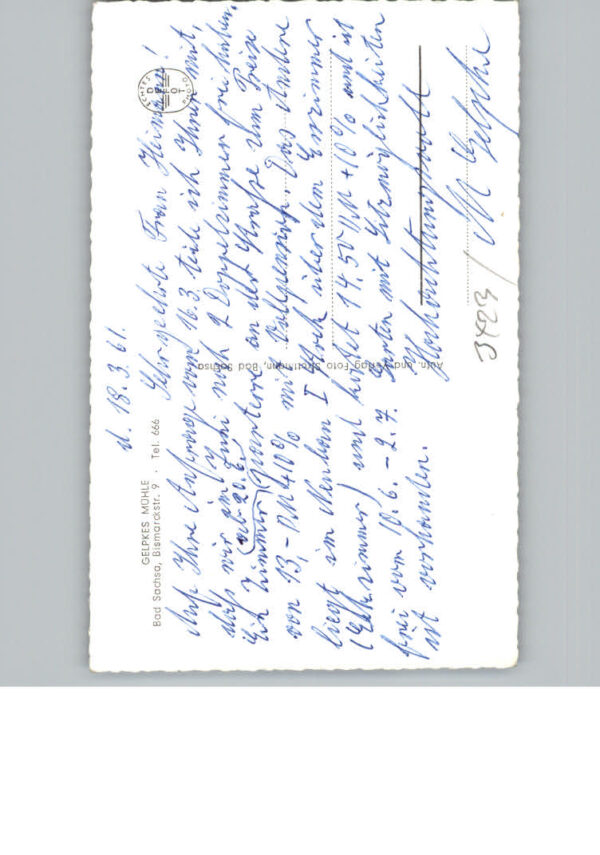 GELPKES MÜHLE
Bad Sachsa, Bismarckstr. 9 · Tel. 666
d. 18.3.61.
Sehr geehrte Frau
Auf Ihre Anfrage vom 16.3. teile ich Ihnen mit,
daß wir im Juni noch 2 Doppelzimmer frei haben.
(ab 20.6.)
Ein Zimmer parterre an der Straße zum Preise
von 13,- DM + 10% mit Vollpension. Das Andere
liegt im Neubau I Stock über dem Esszimmer
(Eckzimmer) und kostet 14.50 DM + 10% und ist
frei vom 10.6. - 2.7. Garten mit Sitzmöglichkeiten
ist vorhanden.
Hochachtungsvoll
M Gelpke
Auf. und Verlag Foto Bad Sachsa
ECHTES
PHOTO
3423/